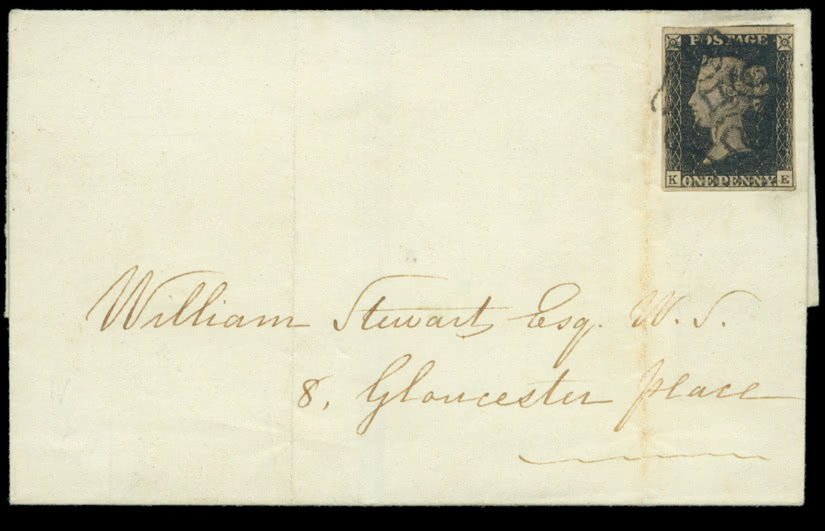 POSTAGE
K ONE PENNY. E
William Stewart Esq. W. S.
8, Gloucester place